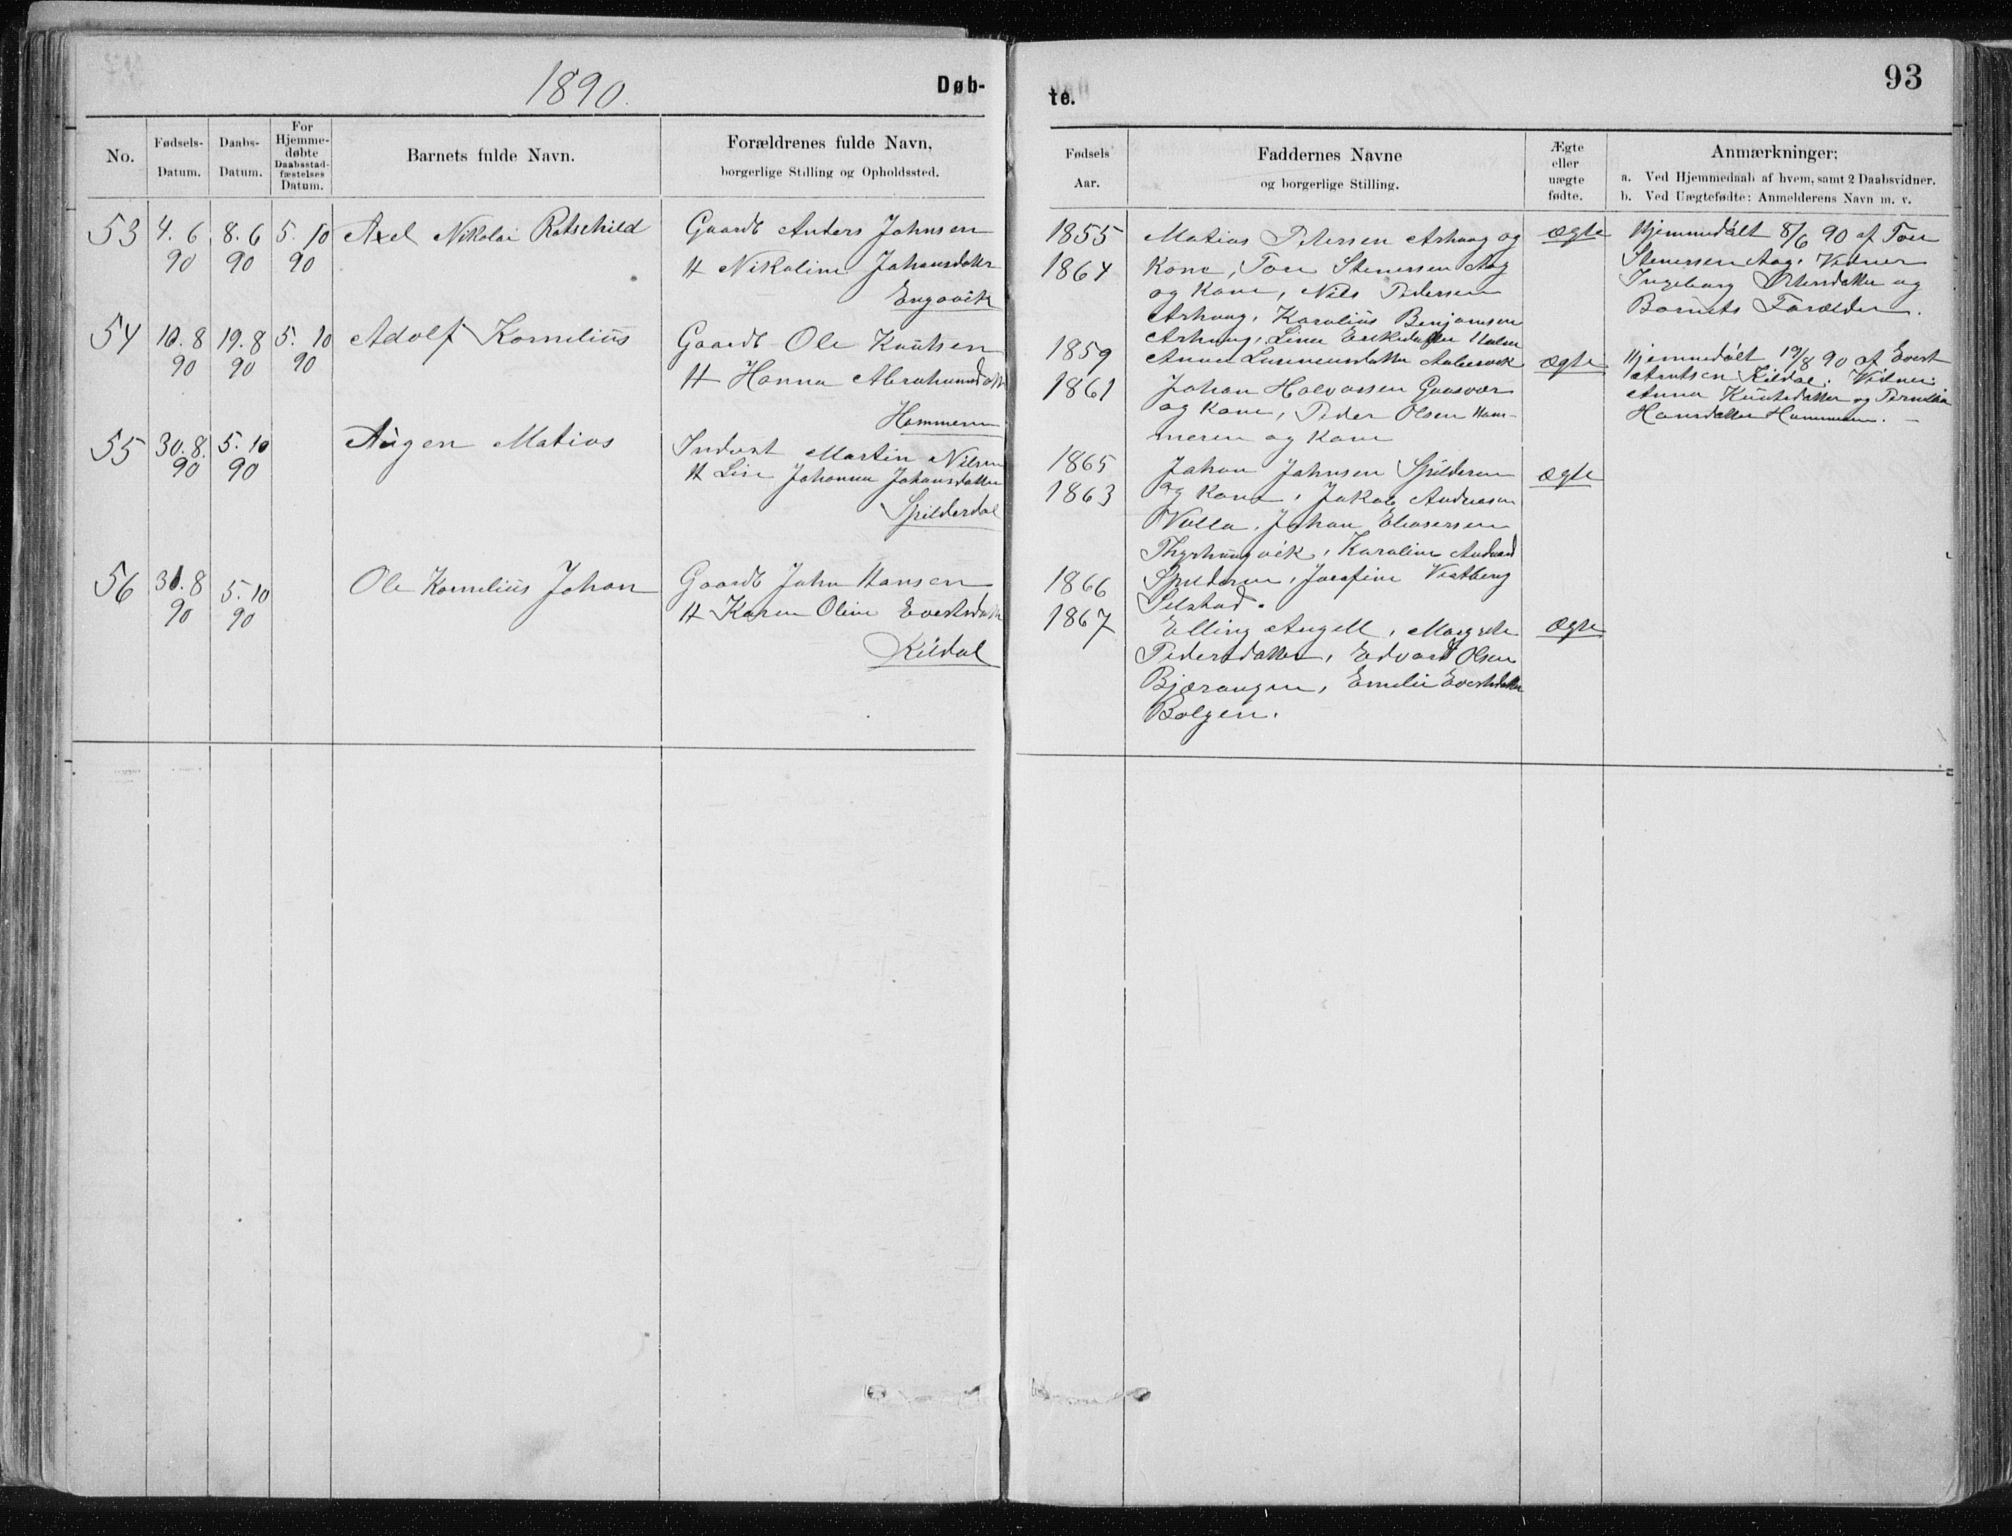 1890.
Døb-
No.
Fødsels-
Datum.
Daabs-
Datum.
For
Hjemme-
døbte
Daabsstad-
fæstelses
Datum.
Barnets fulde Navn.
Forældrenes fulde Navn,
borgerlige Stilling og Opholdssted.
53 4. 6 8. 6 5. 10 Axel Nikolai Rotschild Gaardb Anders Johnsen
90 90 90 H Nikoline Johansdatter
Engavik
54 10. 8 19. 8 5. 10 Adolf Kornelius Gaardb Ole Knutsen
90 90 90 H Hanna Abrahamsdatt
Hammeren
55 30. 8. 5. 10 Augen Matias Inderst Martin Nilsen
90 90 H Lise Johanna Johansdatter
Spilderdal
56 31. 8 5. 10 Ole Kornelius Johan Gaardb John Hansen
90 90 H Karen Oline Evertsdatt
Kildal
93
te.
Fødsels
Aar.
Faddernes Navne
og borgerlige Stilling.
Ægte
eller
uægte
fødte.
Anmærkninger;
a. Ved Hjemmedaab af hvem, samt 2 Daabsvidner.
b. Ved Uægtefødte: Anmelderens Navn m. v.
1855 Matias Petersen Arhaug og ægte Hjemmedøbt 8/6 90 af Tore
1864 Kone, Tore Stenersen Aag Stenersen Aag. Vidner
og Kone, Nils Pedersen Ingeborg Ørtensdatter og
Arhaug, Karolius Benjamsen Barnets Forælder.
Arhaug, Lina Eriksdatter Holm
1859 Anna Aalesvik ægte Hjemmedøbt 19/8 90 af Evert
1861 Johan Halvorsen Gaasvær Arntsen Kildal. Vidner:
og Kone, Peder Olsen Ham- Anna Knutsdatter og Pernilla
meren og Kone Hansdatter Hammeren.
1865 Johan Johnsen Spilderen ægte
1863 og Kone, Jakob Andreasen
Valla, Johan Eliasersen
Thyrhaugvik, Karoline
1866 Spilderen, Josefine Vestberg
Selstad.
1867 Elling Angell, Margrete ægte
Pedersdatter, Edvard Olsen
Bjærangen, Emelie Evertsdatter
Bolgen.